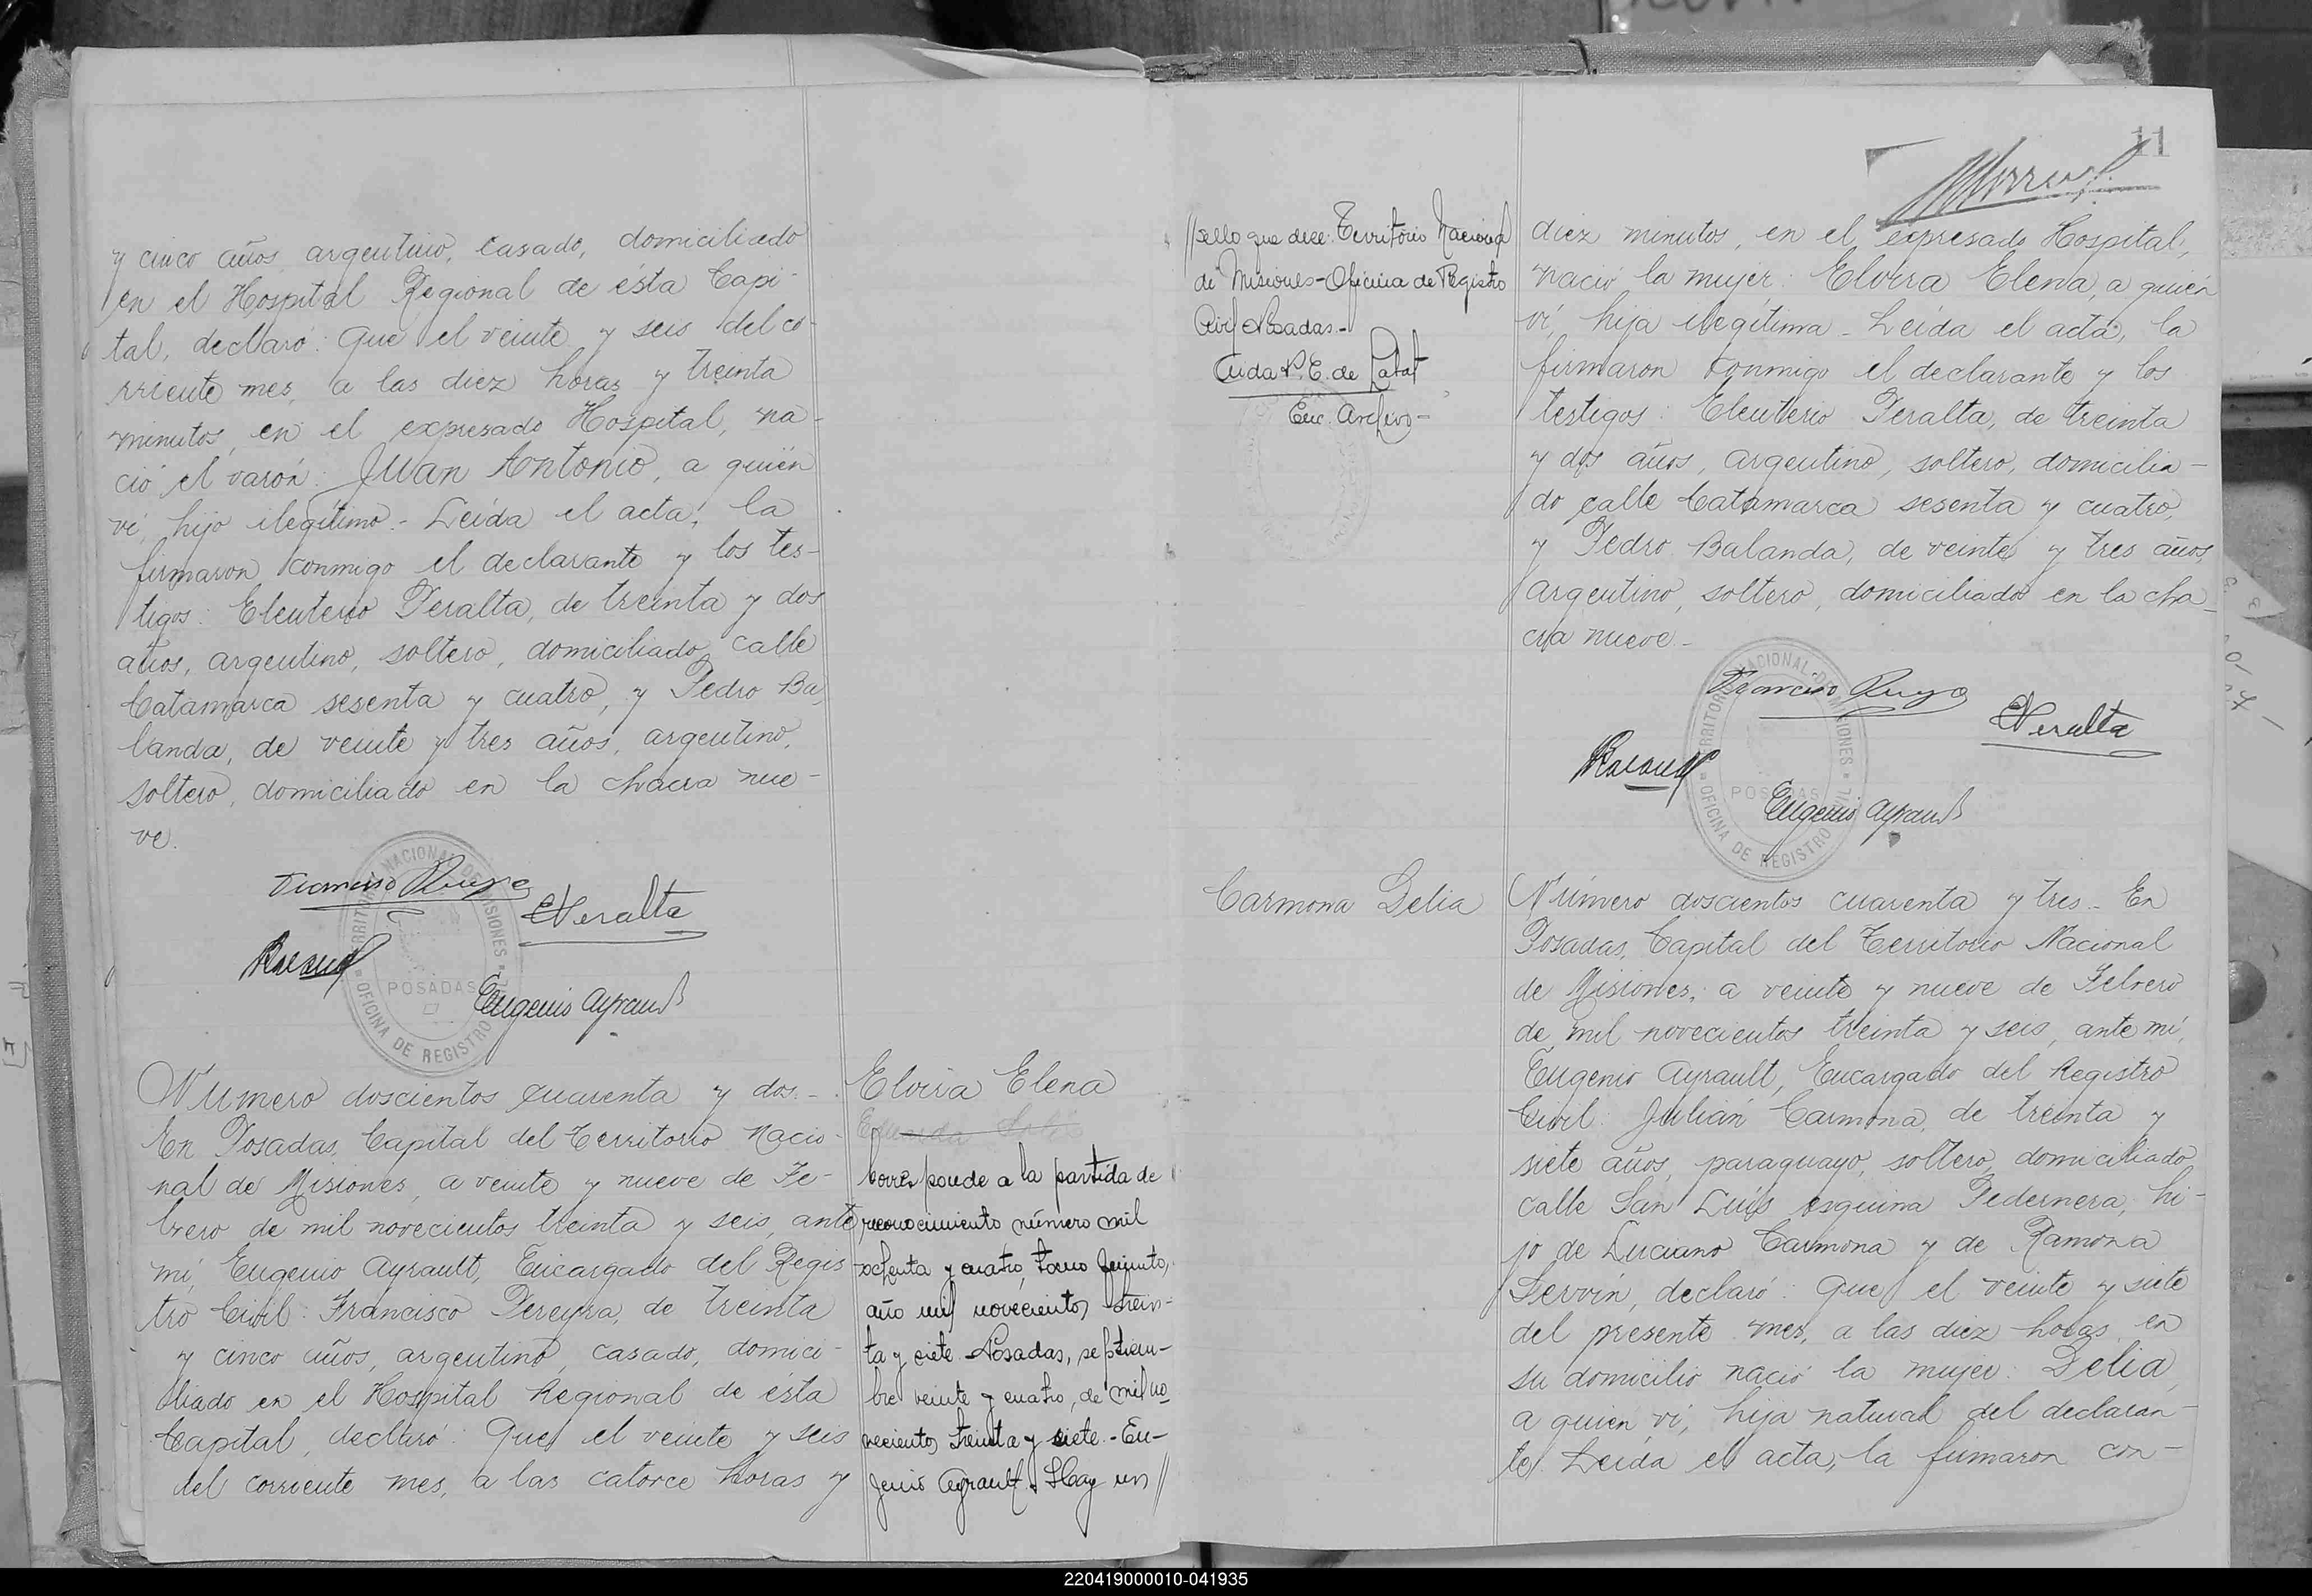 y cinco años, argentino, casado, domiciliado
en el Hospital Regional de ésta Capi-
tal, declaró: Que el veinte y seis del co-
rriente mes, a las diez horas y treinta
minutos, en el expresado Hospital, na-
ció el varón: Juan Antonio, a quién
ví, hijo ilegítimo.- Leída el acta, la
firmaron conmigo el declarante y los tes-
tigos: Eleuterio Peralta, de treinta y dos
años, argentino, soltero, domiciliado calle
Catamarca sesenta y cuatro, y Pedro Ba-
landa, de veinte y tres años, argentino,
soltero, domiciliado en la chacra nue-
ve.
TERRITORIO NACIONAL DE MISIONES
OFICINA DE REGISTRO CIVIL
POSADAS
EPeralta
Eugenio Ayrault
Número doscientos cuarenta y dos.-
En Posadas, Capital del Territorio Nacio-
nal de Misiones, a veinte y nueve de Fe-
brero de mil novecientos treinta y seis, ante
mí, Eugenio Ayrault, Encargado del Regis-
tro Civil: Francisco Pereyra, de treinta
y cinco años, argentino, casado, domici-
liado en el Hospital Regional de ésta
Capital, declaró: Que el veinte y seis
del corriente mes, a las catorce horas y
Elvira Elena
Corresponde a la partida de
reconocimiento número mil
ochenta y cuatro, tomo
año mil novecientos trein-
ta y siete. Posadas, septiem-
bre veinte y cuatro, de mil no-
vecientos treinta y siete.- Eu-
jenio Ayrault. Hay un //
11
// sello que dice: Territorio Nacional
de Misiones-Oficina de Registro
Civil Posadas.-
Enc. Archivo-
diez minutos, en el expresado Hospital,
nació la mujer: Elvira Elena, a quién
ví, hija ilegítima.- Leída el acta, la
firmaron conmigo el declarante y los
testigos: Eleuterio Peralta, de treinta
y dos años, argentino, soltero, domicilia-
do calle Catamarca sesenta y cuatro,
y Pedro Balanda, de veinte y tres años,
argentino, soltero, domiciliado en la cha-
cra nueve.-
TERRITORIO NACIONAL DE MISIONES
OFICINA DE REGISTRO CIVIL
POSADAS
EPeralta
Eugenio Ayrault
Carmona Delia
Número doscientos cuarenta y tres.- En
Posadas, Capital del Territorio Nacional
de Misiones, a veinte y nueve de Febrero
de mil novecientos treinta y seis, ante mí,
Eugenio Ayrault, Encargado del Registro
Civil: Julián Carmona, de treinta y
siete años, paraguayo, soltero, domiciliado
calle San Luís esquina Pedernera, hi-
jo de Luciano Carmona y de Ramona
Servín, declaró: Que el veinte y siete
del presente mes, a las diez horas, en
su domicilio nació la mujer: Delia,
a quien ví, hija natural del declaran-
te. Leída el acta, la firmaron con-
220419000010-041935